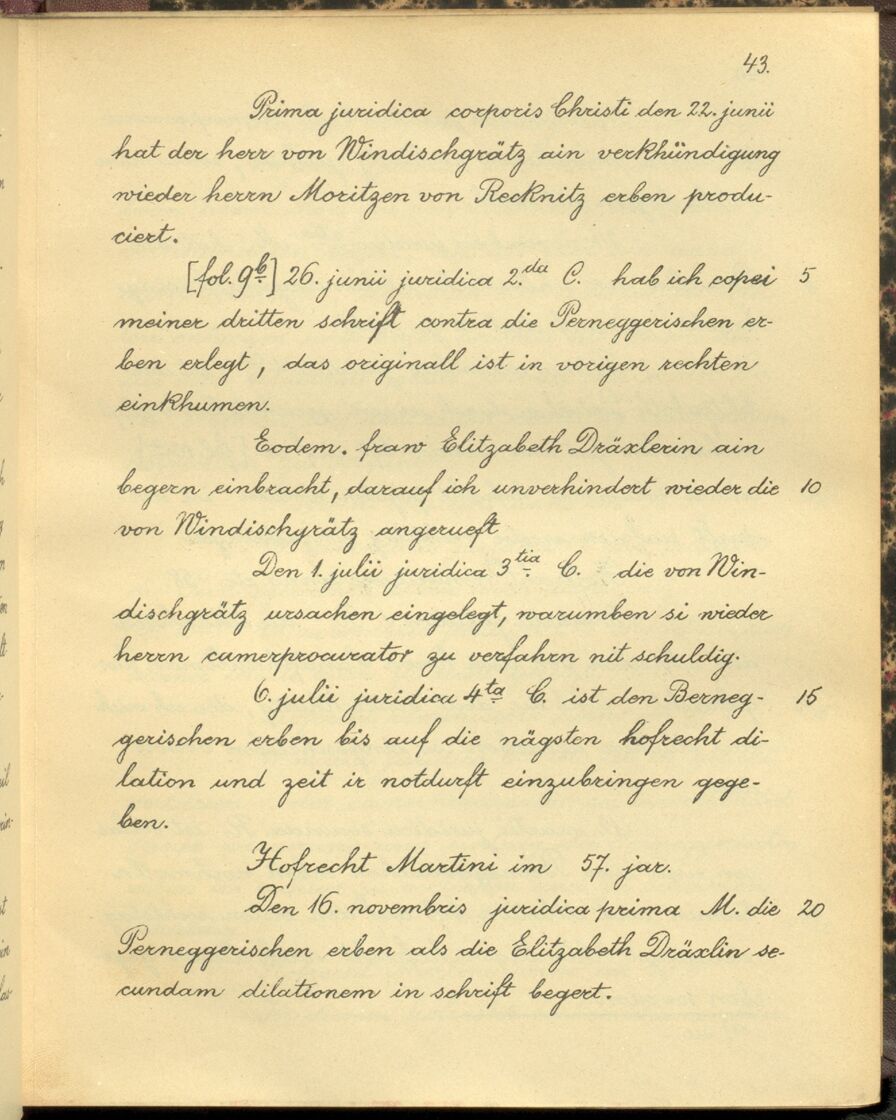 43.
Prima juridica corporis Christi den 22. junii
hat der herr von Windischgrätz ain verkhündigung
wieder herrn Moritzen von Recknitz erben produ-
ciert.
[fol. 9b] 26. junii juridica 2.da C. hab ich copei 5
meiner dritten schrift contra die Perneggerischen er-
ben erlegt, das originall ist in vorigen rechten
einkhumen.
Eodem. fraw Elitzabeth Dräxlerin ain
begern einbracht, darauf ich unverhindert wieder die 10
von Windischgrätz angerueft
Den 1. julii juridica 3tia C. die von Win-
dischgrätz ursachen eingelegt, warumben si wieder
herrn camerprocurator zu verfahrn nit schuldig.
6. julii juridica 4ta C. ist den Berneg- 15
gerischen erben bis auf die nägsten hofrecht di-
lation und zeit ir notdurft einzubringen gege-
ben.
Hofrecht Martini im 57. jar.
Den 16. novembris juridica prima M. die 20
Perneggerischen erben als die Elitzabeth Dräxlin se-
cundam dilationem in schrift begert.